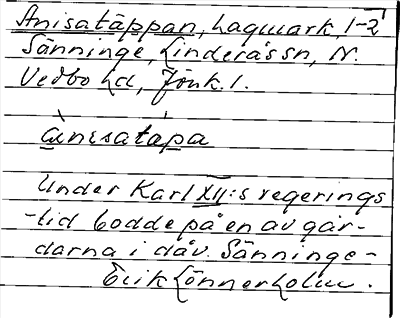 Anisatäppan, Lagmark, 1-2
Sänninge, Linderås sn, N.
Vedbo hd, Jönk. l.
ànisatápa
Under Karl XII:s regerings
-tid bodde på en av går-
darna i dåv. Sänninge-
Erik Lönnerholm.